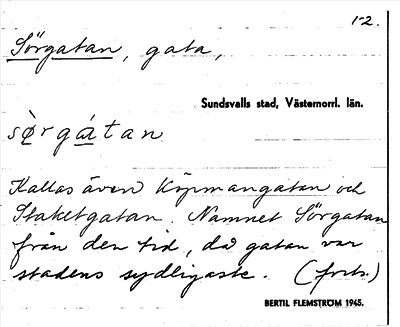 1-2.
Sörgatan, gata,
Sundsvalls stad, Västernorrl. län.
sö̀rgátan
Kallas även Köpmangatan och
Staketgatan. Namnet Sörgatan
från den tid, då gatan var
stadens sydligaste. (forts.)
BERTIL FLEMSTRÖM 1945.